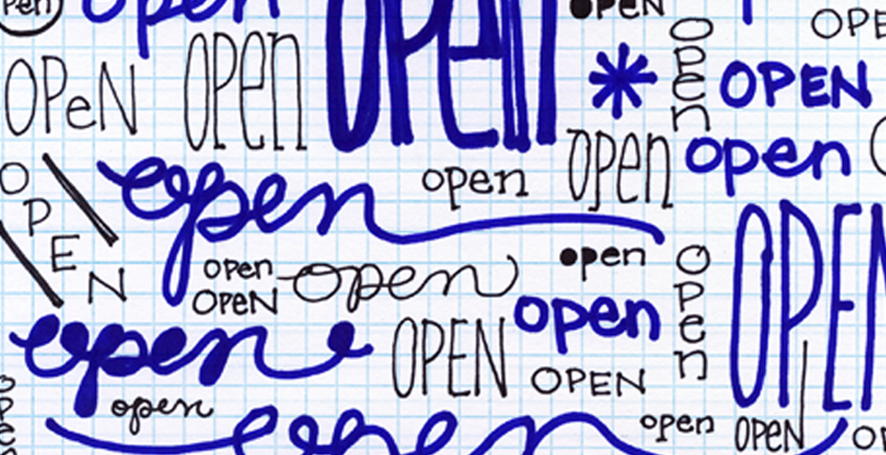 open
open
open
open
OPE
OPeN
open
open
open
OPEN
open
open
open
open
OPEN
open
open
OPEN
open
open
open
OPEN
open
open
OPEN
OPEN
open
open
open
open
OPEN